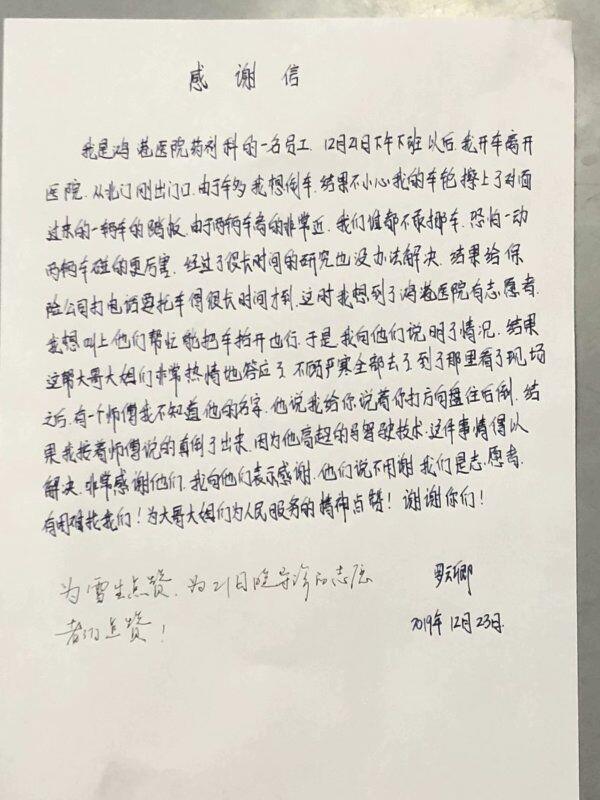 感谢信
我是鸿港医院药剂科的一名员工，12月21日下午下班以后，我开车离开
医院，从北门刚出门口，由于车多，我想倒车，结果不小心我的车轮擦上了对面
过来的一辆车的踏板，由于两辆车离的非常近，我们谁都不敢挪车，恐怕一动
两辆车碰的更厉害，经过了很长时间的研究也没办法解决，结果给保
险公司打电话要托车得很长时间才到，这时我想到了鸿港医院有志愿者，
我想叫上他们帮忙能把车抬开也行，于是我向他们说明了情况，结果
这帮大哥大姐们非常热情地答应了，不顾严寒全部去了，到了那里看了现场
之后，有一个师傅我不知道他的名字，他说我给你说着你打方向盘往后倒，结
果我按着师傅说的真倒了出来，因为他高超的驾驶技术，这件事情得以
解决，非常感谢他们，我向他们表示感谢，他们说不用谢，我们是志愿者，
有困难找我们！为大哥大姐们为人民服务的精神点赞！谢谢你们！
卿
2019年12月23日
为雪生点赞，为21日院导诊的志愿
者们点赞！